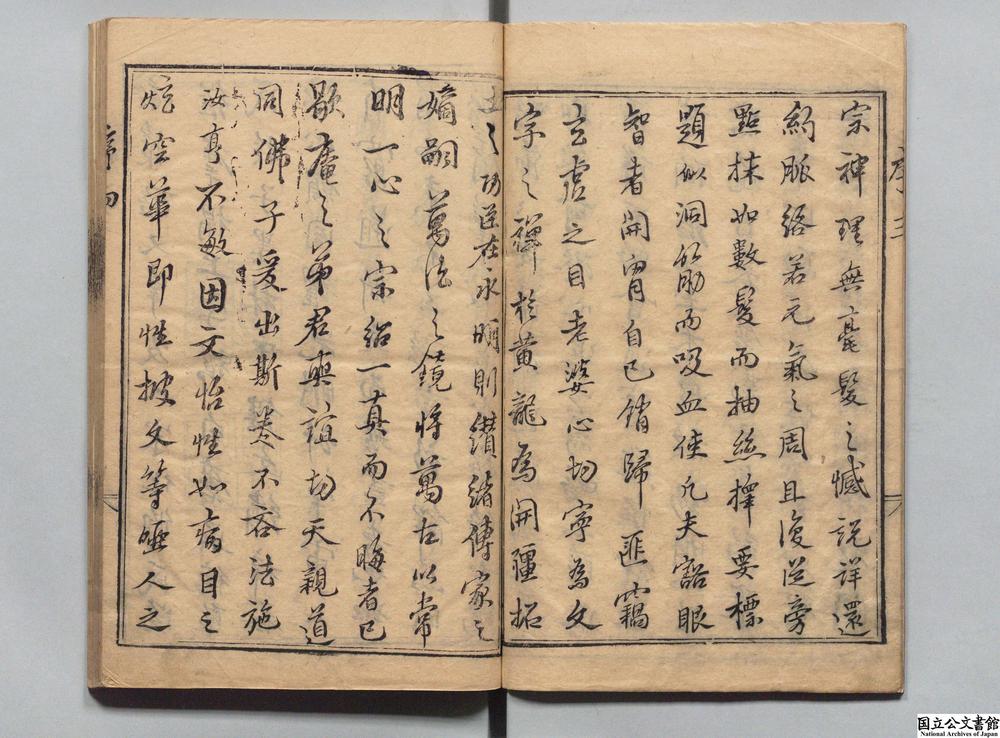 序三
宗神理無毫髮之憾說詳還
約脈絡若元氣之周且復從旁
點抹如數髮而抽絲擇要標
題似洞筋而吸血使凡夫豁眼
智者開胷自已銷歸匪竊
玄虛之目老婆心切寧為文
字之禪於黃龍為開疆拓
土之功迹在永明則纘緒傳家之
嫡嗣萬法之鏡將萬古以常
明一心之宗紹一真而不晦者已
歇庵之弟君奭誼切天親道
同佛子爰出斯卷不吝法施
汝亨不敏因文怡性如病目之
空華即性披文等啞人之
序四
国立公文書館
National Archives of Japan